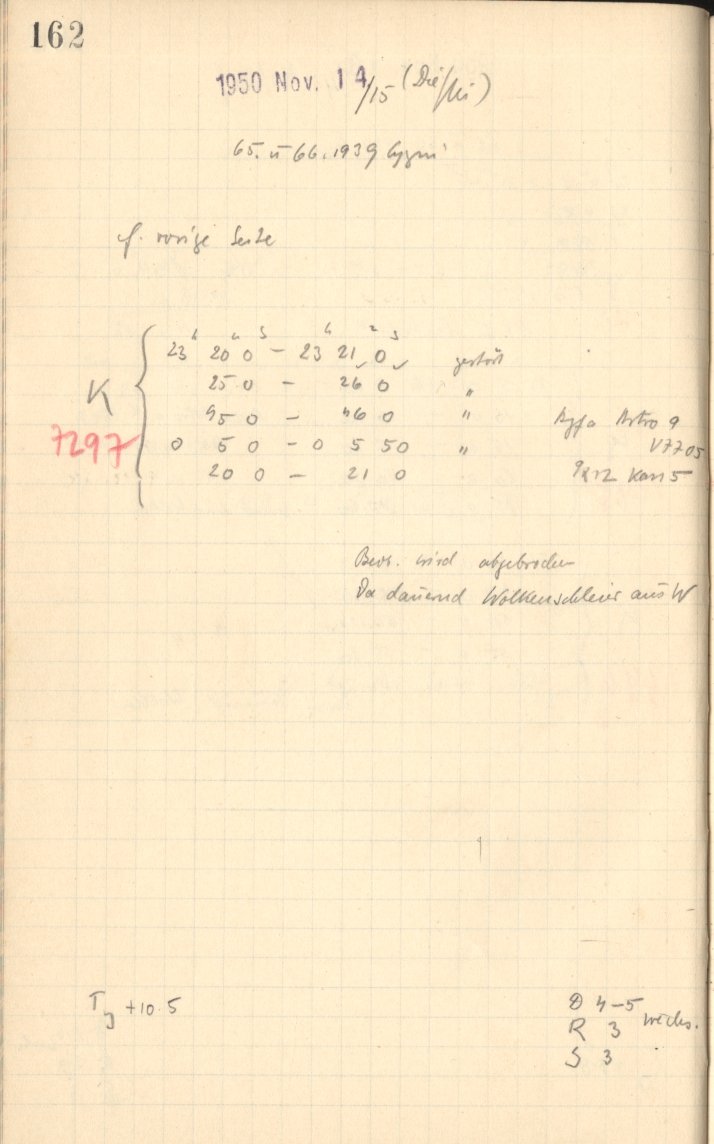 162
1950 Nov. 14/15 (Die/Mi)
65. u 66. 1939 Cygni
f. vorige Seite
h m s h m s
23 20 0 – 23 21 0 gestört
25 0 – 26 0 "
K 45 0 – 46 0 " Agfa Astro 9
7297 0 5 0 – 0 5 50 " V7705
20 0 – 21 0 9x12 Kass 5
Beob. wird abgebrochen
Da dauernd Wolkenschleier aus W
T +10.5
D 4–5
R 3 wechs.
S 3